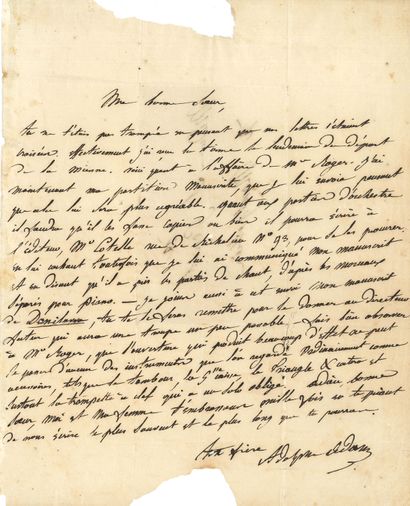 Ma bonne Sœur,
tu ne t'étais pas trompée en pensant que nos lettres s'étaient
croisées. effectivement j'ai reçu la tienne le lendemain du départ
de la mienne. voici quant à l'affaire de Mr Roger. J'ai
maintenant ma partition Manuscrite, que je lui envoie pensant
que cela lui sera plus agréable. quant aux parties d'orchestre
il faudra qu'il les fasse copier ou bien il pourra écrire à
l'éditeur, Mr rue de Richelieu No 93, pour se les procurer,
en lui toutefois que je lui ai communiqué mon manuscrit
et en disant qu'il a pris les parties de chant, d'après les morceaux
séparés pour piano. — Je joins aussi à cet envoi mon manuscrit
de Danilowa, tu te le feras remettre pour le donner au directeur
 qui aura une troupe un peu passable. fais bien observer
à Mr Roger, que l'ouverture qui produit beaucoup d'effet ne peut
se passer d'aucun des instruments que l'on regarde ordinairement comme
accessoires, tels que le Tambour, la Gsse caisse le Triangle &
surtout la trompette à clef qui a un solo obligé. adieu, bonne
sœur, moi et ma femme t'embrassons mille fois et te prions
de nous écrire le plus souvent et le plus long que tu pourras.
ton frère
Adolphe Adam